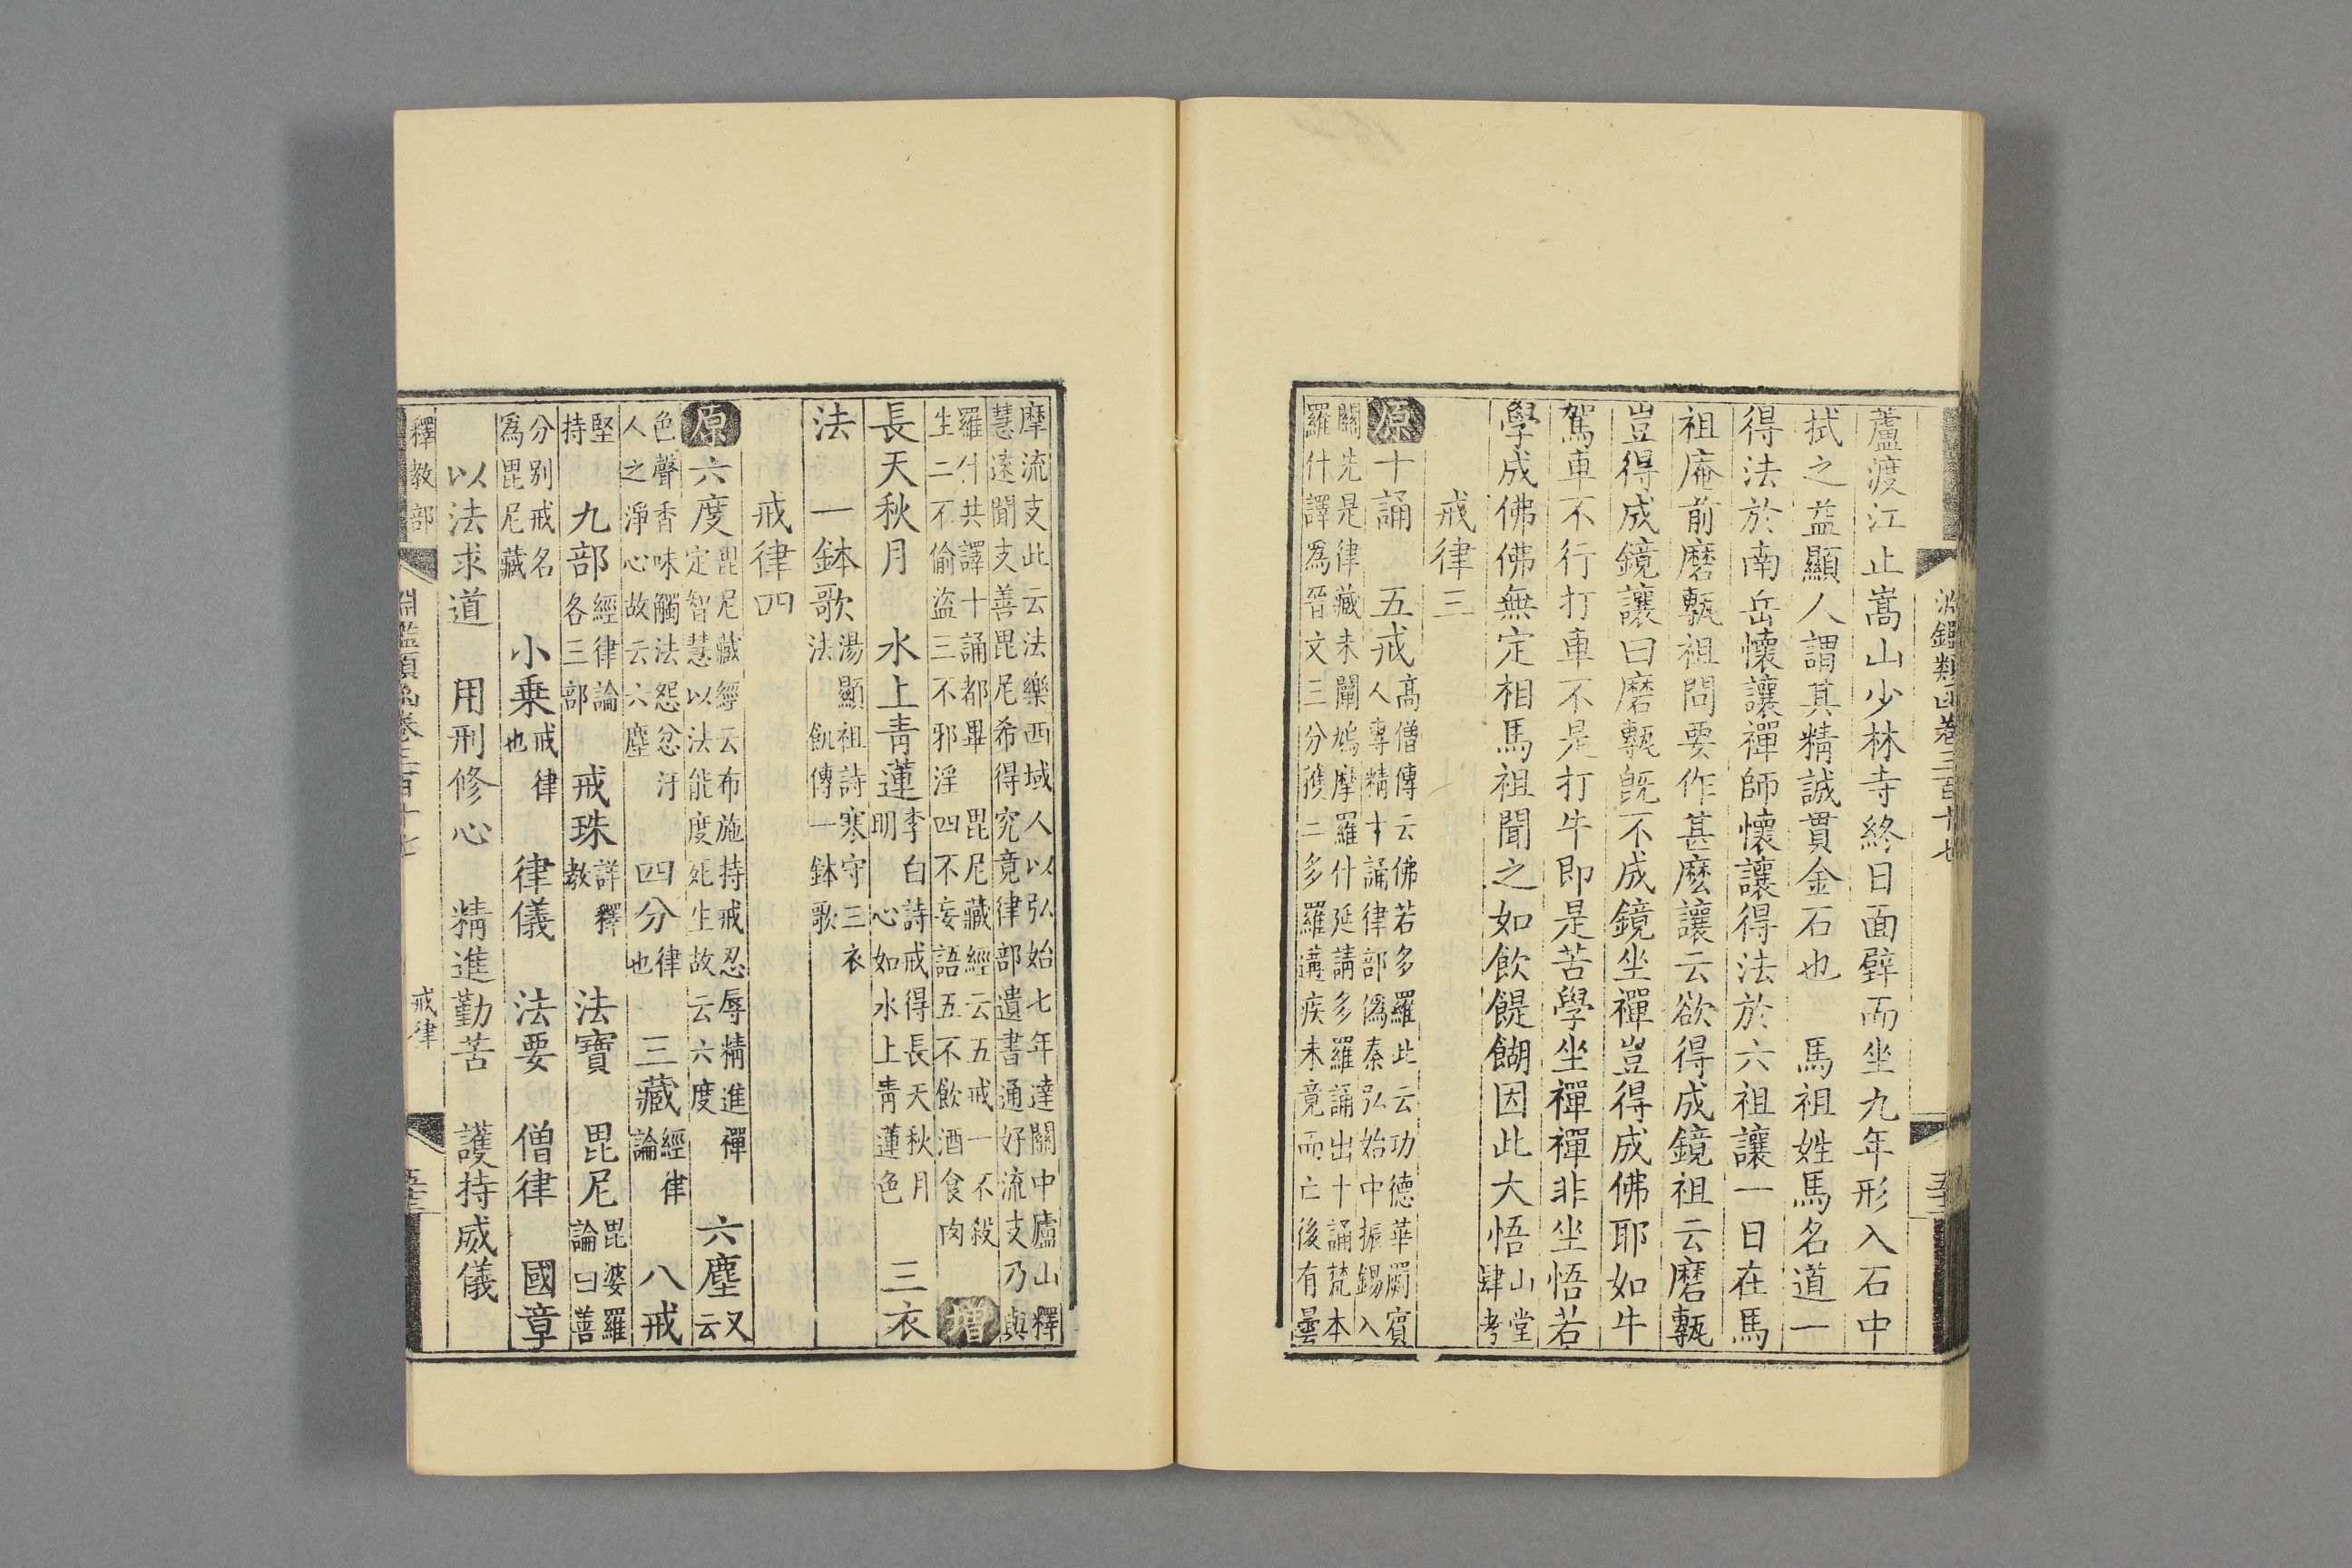 蘆渡江止嵩山少林寺終日面壁而坐九年形入石中
拭之益顯人謂其精誠貫金石也 馬祖姓馬名道一
得法於南岳懷讓禪師懷讓得法於六祖讓一日在馬
祖庵前磨甎祖問要作甚麼讓云欲得成鏡祖云磨甎
豈得成鏡讓曰磨甎旣不成鏡坐禪豈得成佛耶如牛
駕車不行打車不是打牛即是苦學坐禪禪非坐悟若
學成佛佛無定相馬祖聞之如飮餛餬因此大悟山堂肆考
戒律三
原十誦 五戒高僧傳云佛若多羅此云功德華罽賓人專精十誦律部僞秦弘始中振錫入
關先是律藏未闡鳩摩羅什延請多羅誦出十誦梵本羅什譯爲晉文三分獲二多羅遘疾未竟而亡後有曇
摩流支此云法樂西域人以弘始七年達關中廬山釋慧遠聞支善毘尼希得究竟律部遺書通好流支乃與
羅什共譯十誦都畢 毘尼藏經云五戒一不殺生二不偷盜三不邪淫四不妄語五不飮酒食肉 增
長天秋月 水上靑蓮李白詩戒得長天秋月明心如水上靑蓮色 三衣
法 一鉢歌湯顯祖詩寒守三衣法飢傳一鉢歌
戒律四
原六度毘尼藏經云布施持戒忍辱精進禪定智慧以法能度死生故云六度 六塵又云
色聲香味觸法怨忿汙人之淨心故云六塵 四分律也 三藏經律論 八戒
堅持 九部經律論各三部 戒珠詳釋教 法寶 毘尼毘婆羅論曰善
分別戒名爲毘尼藏 小乗戒律也 律儀 法要 僧律 國章
以法求道 用刑修心 精進勤苦 護持威儀
釋教部 淵鑑類函卷三百十七 戒律